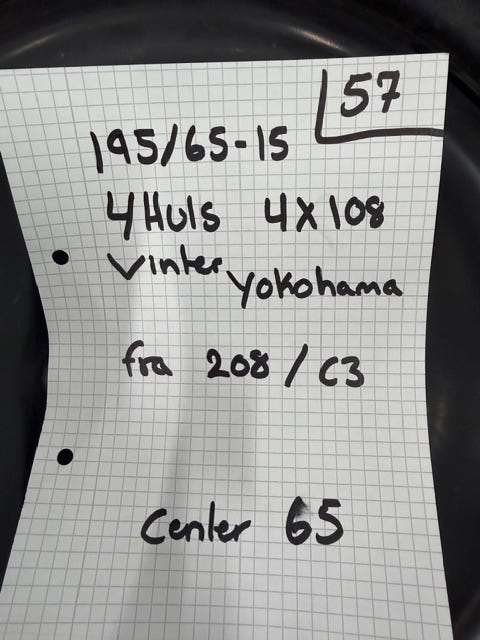 57
195/65-15
4 Huls 4x108
Vinter Yokohama
fra 208 / C3
Center 65